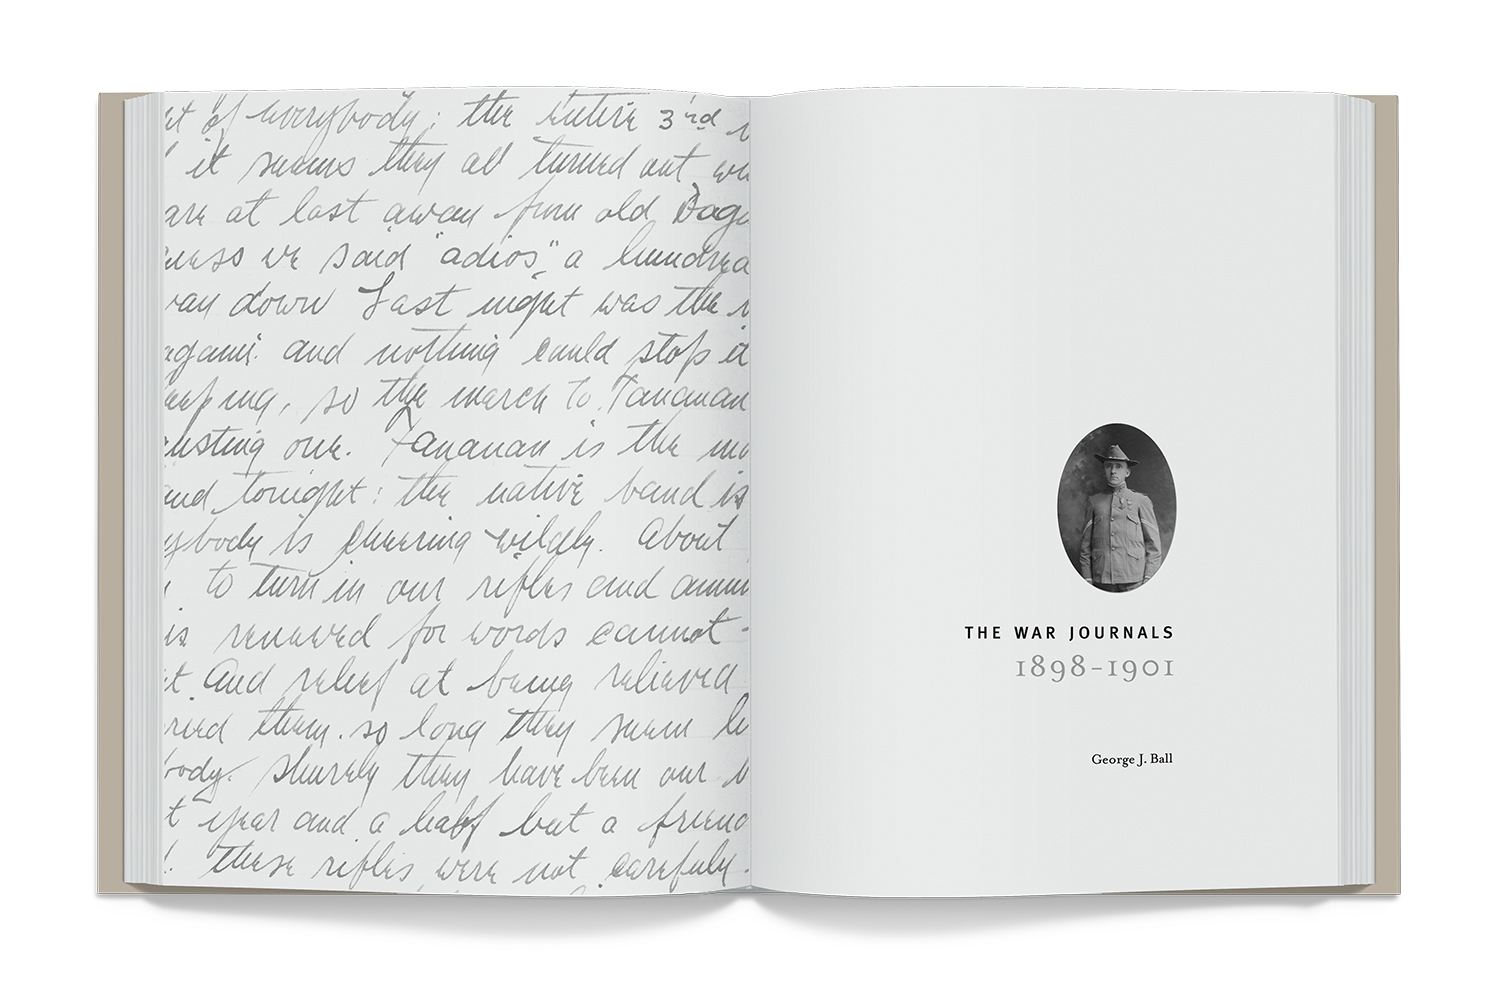 of everybody; the entire 3rd
it seems they all turned out
are at last away from old Daga
guess we said "adios" a hundred
way down Last night was the
agami and nothing could stop it
eeping, so the march to Tanauan
usting one. Tanauan is the
and tonight: the native band is
ybody is cheering wildly. About
to turn in our rifles and ammu
is renewed for words cannot -
And relief at being relieved
ried them so long they seem
body. Shurely they have been our
t year and a half but a friend
These rifles were not carefuly
THE WAR JOURNALS
1898–1901
George J. Ball